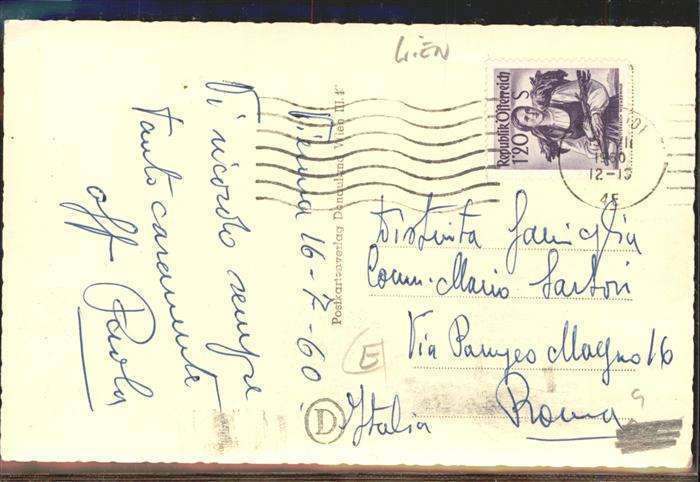 WIEN
Vienna 16-7-60
Vi ricordo sempre
tanto caramente
aff Paola
Postkartenverlag Donauland Wien III.4°
Republik Österreich
S
1'20
1960
12-13
Distinta Famiglia
Comm. Mario Sartori
Via Pompeo Magno 16
Roma
Italia
E
D